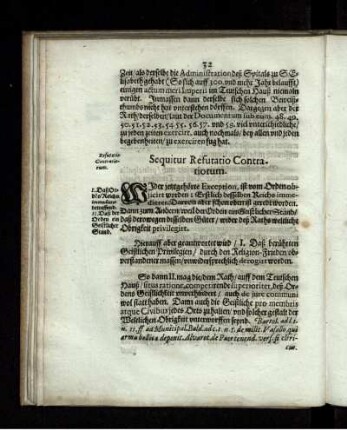 32
Zeit/ als derselbe die Administration deß Spitals zu S. E-
lisabeth gehabt (So sich auff 300. und mehr Jahr belaufft/
einigen actum meri Imperii im Teutschen Hauß niemaln
verübt. Immassen dann derselbe sich solchen
thumbs nicht hat unterstehen dörffen. Dagegen aber der
Rath/ derselben/ laut der Documentorum sub num. 48. 49.
50. 51. 52. 53. 54. 55. 56. 57. und 59. viel unterschiedliche/
zu jeden zeiten exercirt, auch nochmals/ bey allen und jeden
begebenheiten/ zu exerciren fug hat.
Refutatio
Contrario-
rum.
Sequitur Refutatio Contra-
riorum.
1. Daß Or-
Reichs
immediate
2. Daß der
Orden ein
Geistlicher
Stand.
WIder jetztgehörte Exception, ist vom Orden
worden: Erstlich desselben Reichs imme-
Darvon aber schon oben ist
Dann zum Andern/ weil der Orden ein Geistlicher Stand/
daß derowegen desselben Güter/ wider deß Raths weltliche
Obrigkeit privilegirt.
Hierauff aber geantwortet wird/ I. Daß berührten
Geistlichen Privilegien/ durch den Religion-Frieden ob-
verstandener massen/ derogirt worden.
So dann II. mag die/ dem Rath/ auff dem Teutschen
Hauß/ situ ratione, competirende superioritet, deß Or-
dens Geistlichkeit unverhindert/ auch de jure communi
wol statt haben. Dann auch die Geistliche pro membris
atque Civibus jedes Orts zu halten/ und solcher gestalt der
Weltlichen Obrigkeit unterworffen seynd. Bartol. ad l. 1.
n. 11. ff. ad Municipal. Bald. ad l. 1. n. 5. de milit. Vasallo qui
arma bellica deposuit. Alvarot. de Pace tenend. vers. si cleri-
cus.